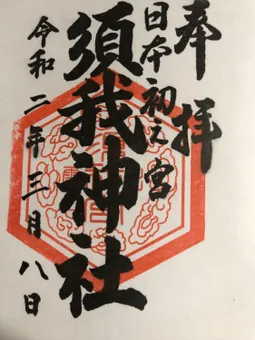 奉拝
日本初之宮
須我神社
令和二年三月八日